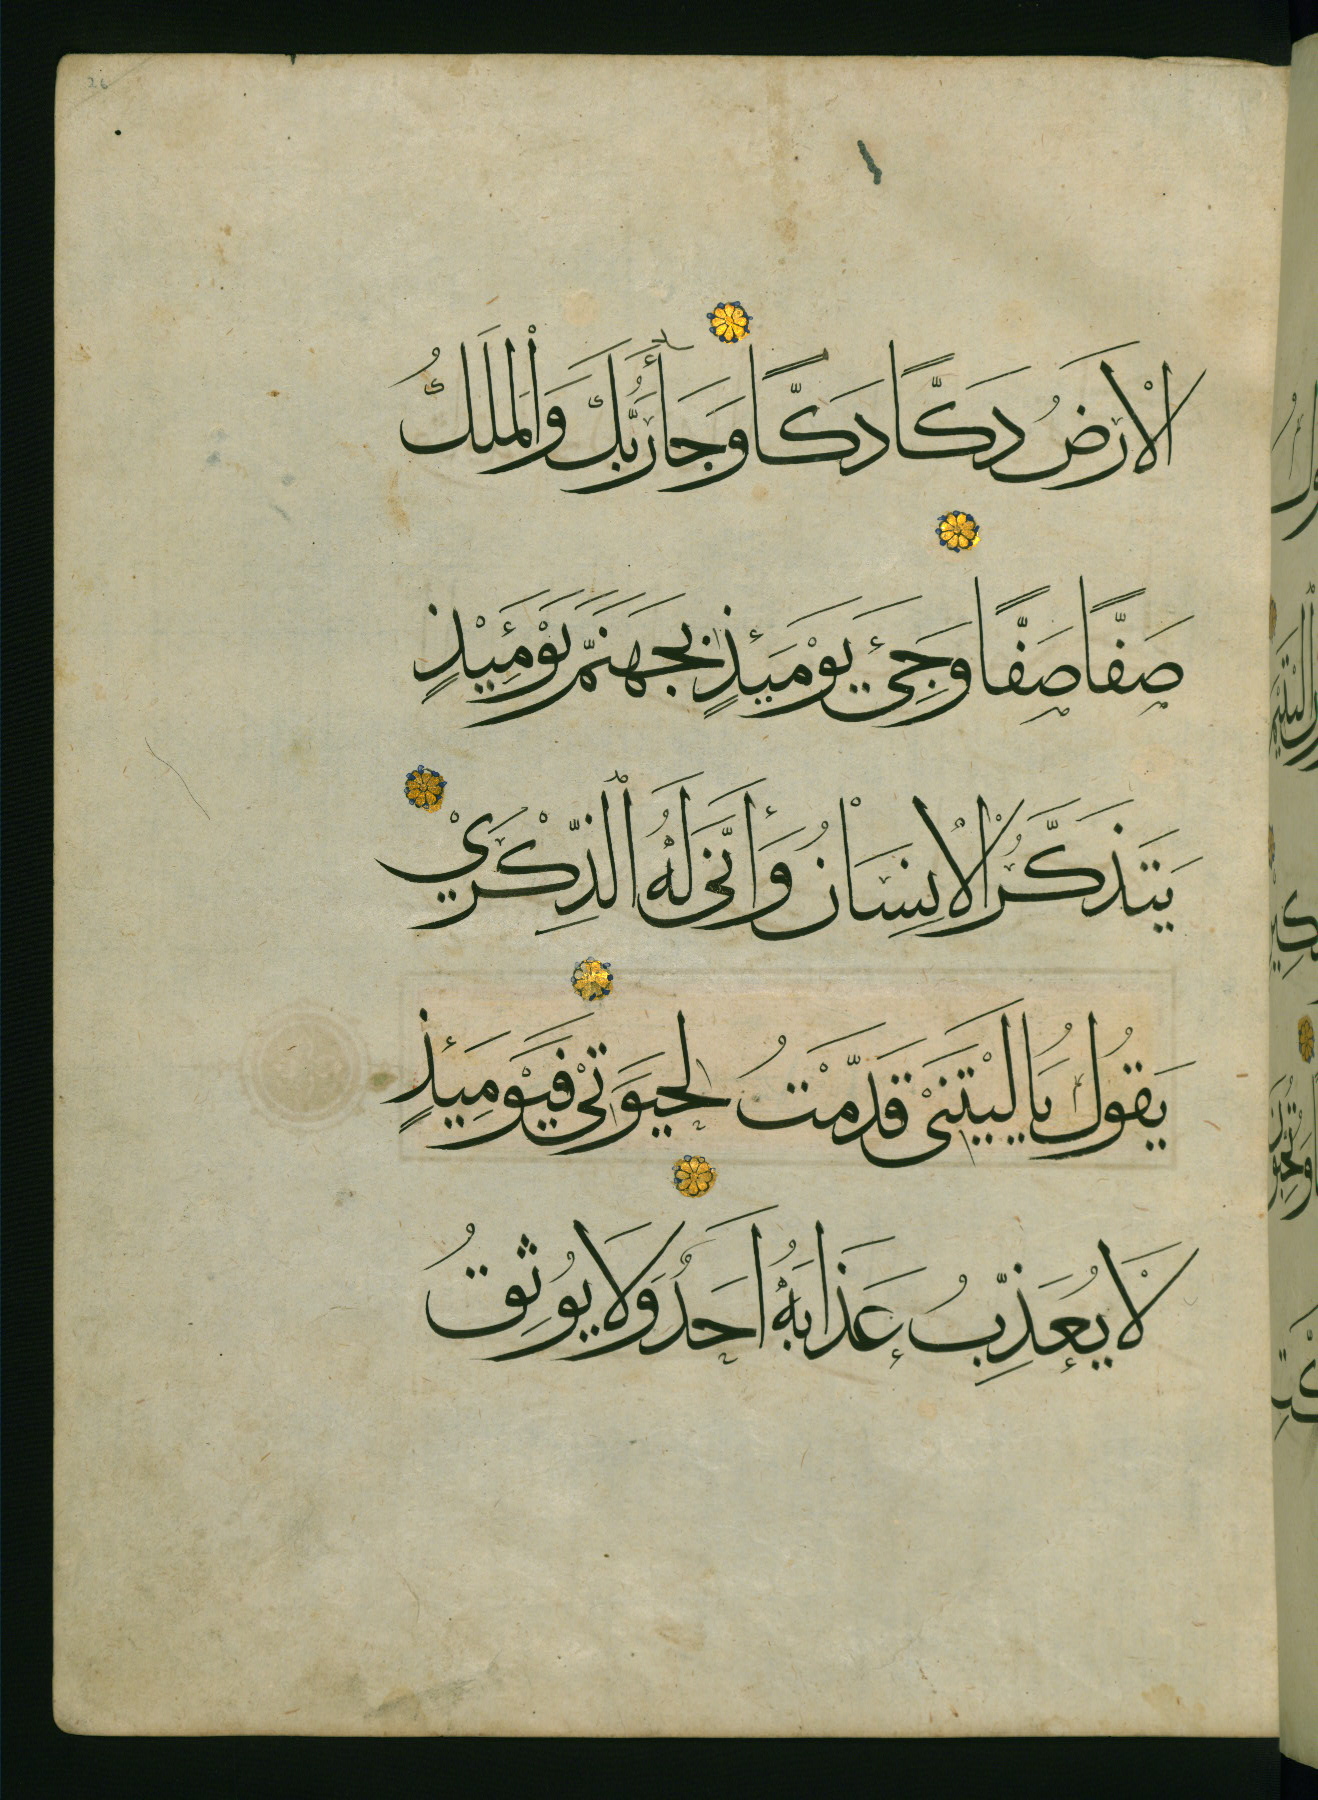 الْأَرْضُ دَكًّا دَكًّا وَجَاءَ رَبُّكَ وَالْمَلَكُ
صَفًّا صَفًّا وَجِيءَ يَوْمَئِذٍ بِجَهَنَّمَ يَوْمَئِذٍ
يَتَذَكَّرُ الْإِنسَانُ وَأَنَّى لَهُ الذِّكْرَى
يَقُولُ يَا لَيْتَنِي قَدَّمْتُ لِحَيَوتِي فَيَوْمَئِذٍ
لَا يُعَذِّبُ عَذَابَهُ أَحَدٌ وَلَا يُوثِقُ